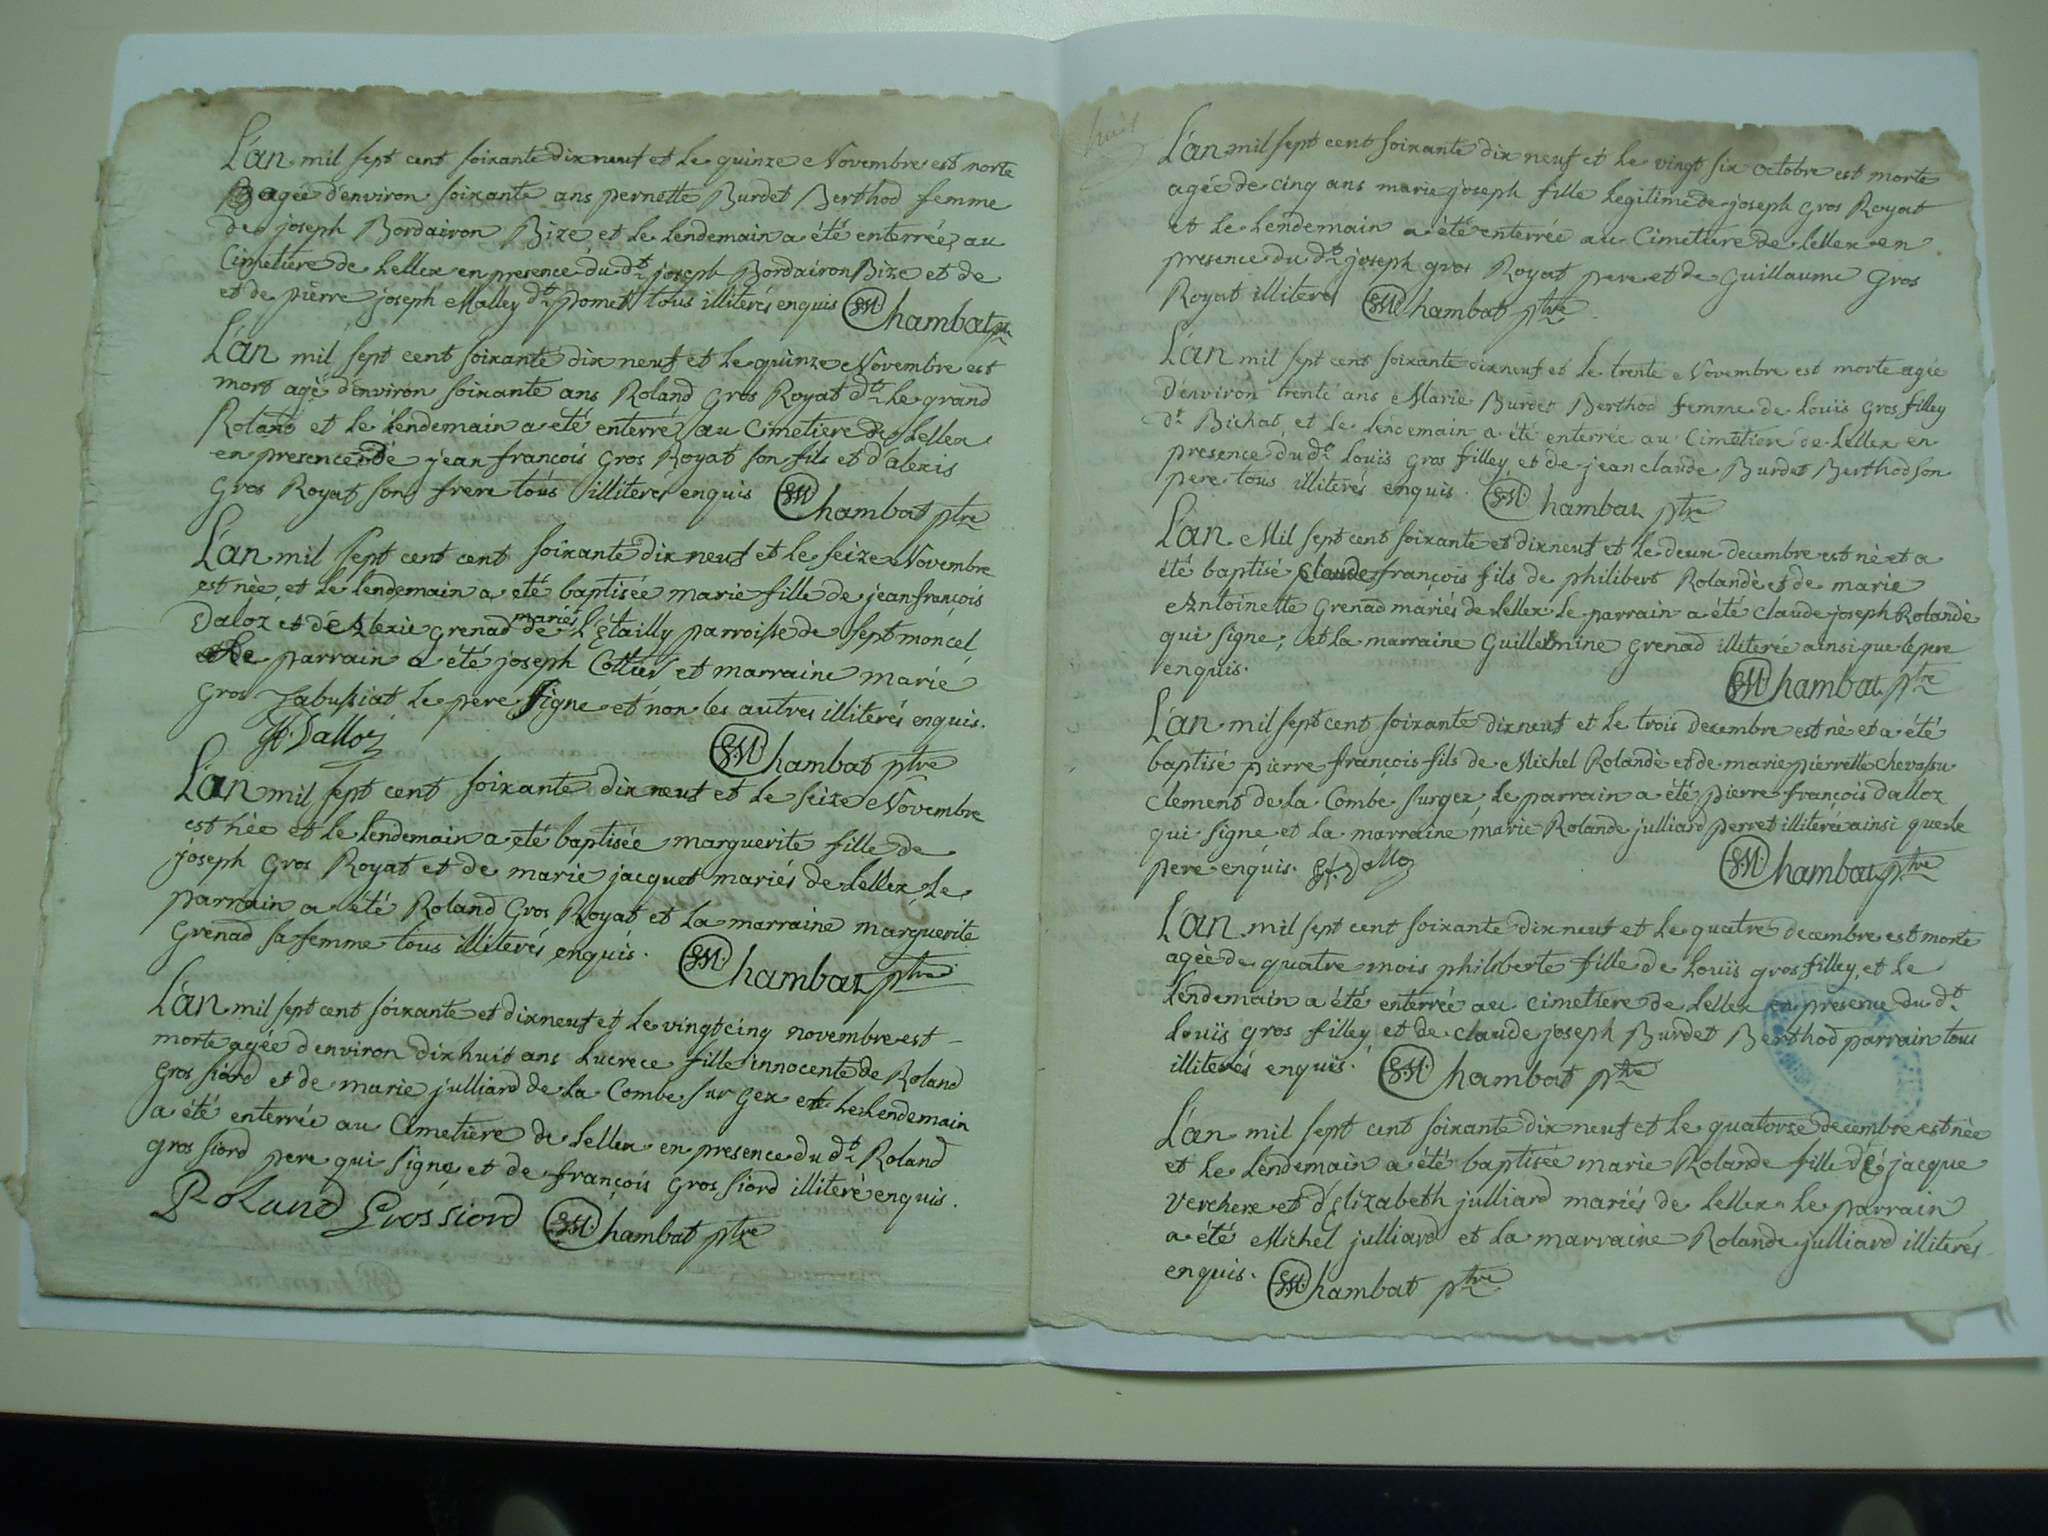 L'an mil sept cent soixante dix neuf et le quinze Novembre est morte
agée d'environ soixante ans pernette Burdet Berthod femme
de joseph Bordairon Bize et le lendemain a été enterrée au
Cimetiere de Lellex en presence du dt joseph Bordairon Bize et de
et de pierre joseph Malley dt pomet tous illiterés enquis Chambat ptre
L'an mil sept cent soixante dix neuf et le quinze Novembre est
mort agé d'environ soixante ans Roland Gros Royat dt le grand
Roland et le lendemain a été enterré au Cimetiere de Lellex
en presence de jean françois Gros Royat son fils et d'alexis
Gros Royat son frere tous illiterés enquis Chambat ptre
L'an mil sept cent cent soixante dix neuf et le seize Novembre
est née et le lendemain a été baptisée marie fille de jean françois
Daloz et de Alexie grenad mariés de l'Etailly parroisse de septmoncel
Le parrain a été joseph Cottier et marraine marie
Gros Jabussiat le pere signe et non les autres illiterés enquis.
Jf. Dalloz
Chambat ptre
L'an mil sept cent soixante dix neuf et le seize Novembre
est née et le lendemain a été baptisée marguerite fille de
joseph Gros Royat et de marie jacquet mariés de Lellex Le
parrain a été Roland Gros Royat et la marraine marguerite
Grenad sa femme tous illiterés enquis. Chambat ptre
L'an mil sept cent soixante et dix neuf et le vingt cinq novembre est
morte agée d'environ dix huit ans Lucrece fille innocente de Roland
Gros siord et de marie julliard de la Combe sur gex et le lendemain
a été enterrée au Cimetiere de Lellex en presence du dt Roland
gros siord pere qui signe et de françois Gros siord illiteré enquis.
Roland Grossiord Chambat ptre
huit
L'an mil sept cent soixante dix neuf et le vingt six octobre est morte
agée de cinq ans marie joseph fille legitime de joseph Gros Royat
et le lendemain a été enterrée au Cimetiere de Lellex en
presence du dt joseph gros Royat pere et de Guillaume Gros
Royat illiteres Chambat ptre
L'an mil sept cent soixante dix neuf et le trente Novembre est morte agée
d'environ trente ans Marie Burdet Berthod femme de Louïs Gros filley
dt Bichat, et le lendemain a été enterrée au Cimetiere de Lellex en
presence du dt Louïs Gros filley et de jean claude Burdet Berthod son
pere tous illiterés enquis. Chambat ptre
L'an Mil sept cent soixante et dix neuf et le deux decembre est né et a
été baptisé claude françois fils de philibert Rolandè et de marie
Antoinette Grenad mariés de Lellex le parrain a été claude joseph Rolandè
qui signe, et la marraine Guillelmine Grenad illiterée ainsi que le pere
enquis. Chambat ptre
L'an mil sept cent soixante dix neuf et le trois decembre est né et a été
baptisé pierre françois fils de Michel Rolandè et de marie pierrette chevassu
clement de la Combe sur gex, le parrain a été pierre françois dalloz
qui signe et la marraine marie Rolande julliard perret illiterée ainsi que le
pere enquis. Dalloz Chambat ptre
L'an mil sept cent soixante dix neuf et le quatre decembre est morte
agée de quatre mois philiberte fille de Louïs gros filley, et le
lendemain a été enterrée au cimetiere de Lellex en presence du dt
Louïs gros filley et de claude joseph Burdet Berthod parrain tous
illiterés enquis. Chambat ptre
L'an mil sept cent soixante dix neuf et le quatorze decembre est née
et le lendemain a été baptisée marie Rolande fille de jacque
Verchere et d'Elizabeth julliard mariés de Lellex. Le parrain
a été Michel julliard et la marraine Rolande julliard illiterés
enquis. Chambat ptre